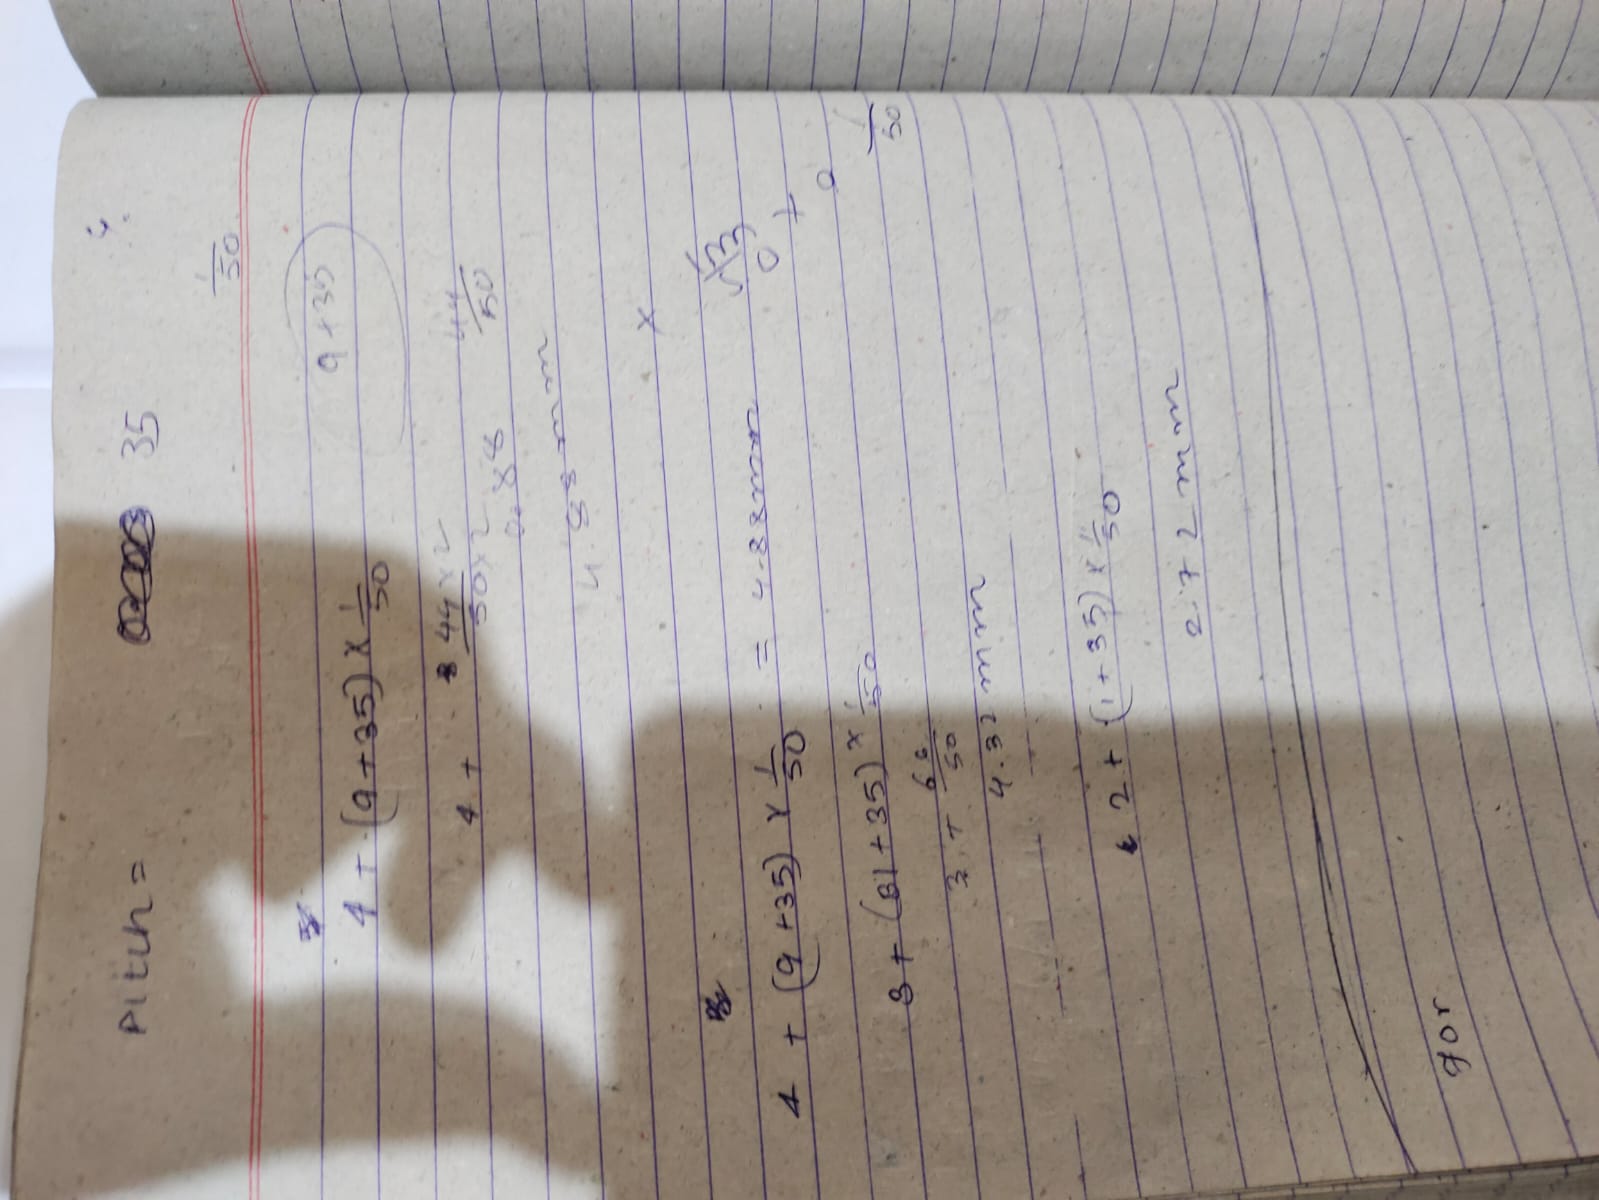 Pitch = 35
1/50
9 + 35
4 + (9+35) × 1/50
4 + 44×2/50×2 44/50
4.88 mm
×
4 + (9+35) × 1/50 = 4.88mm
0 + 0
3 + (31+35) × 1/50 1/50
3 + 66/50
4.32 mm
2 + (1+35) × 1/50
2.72 mm
for